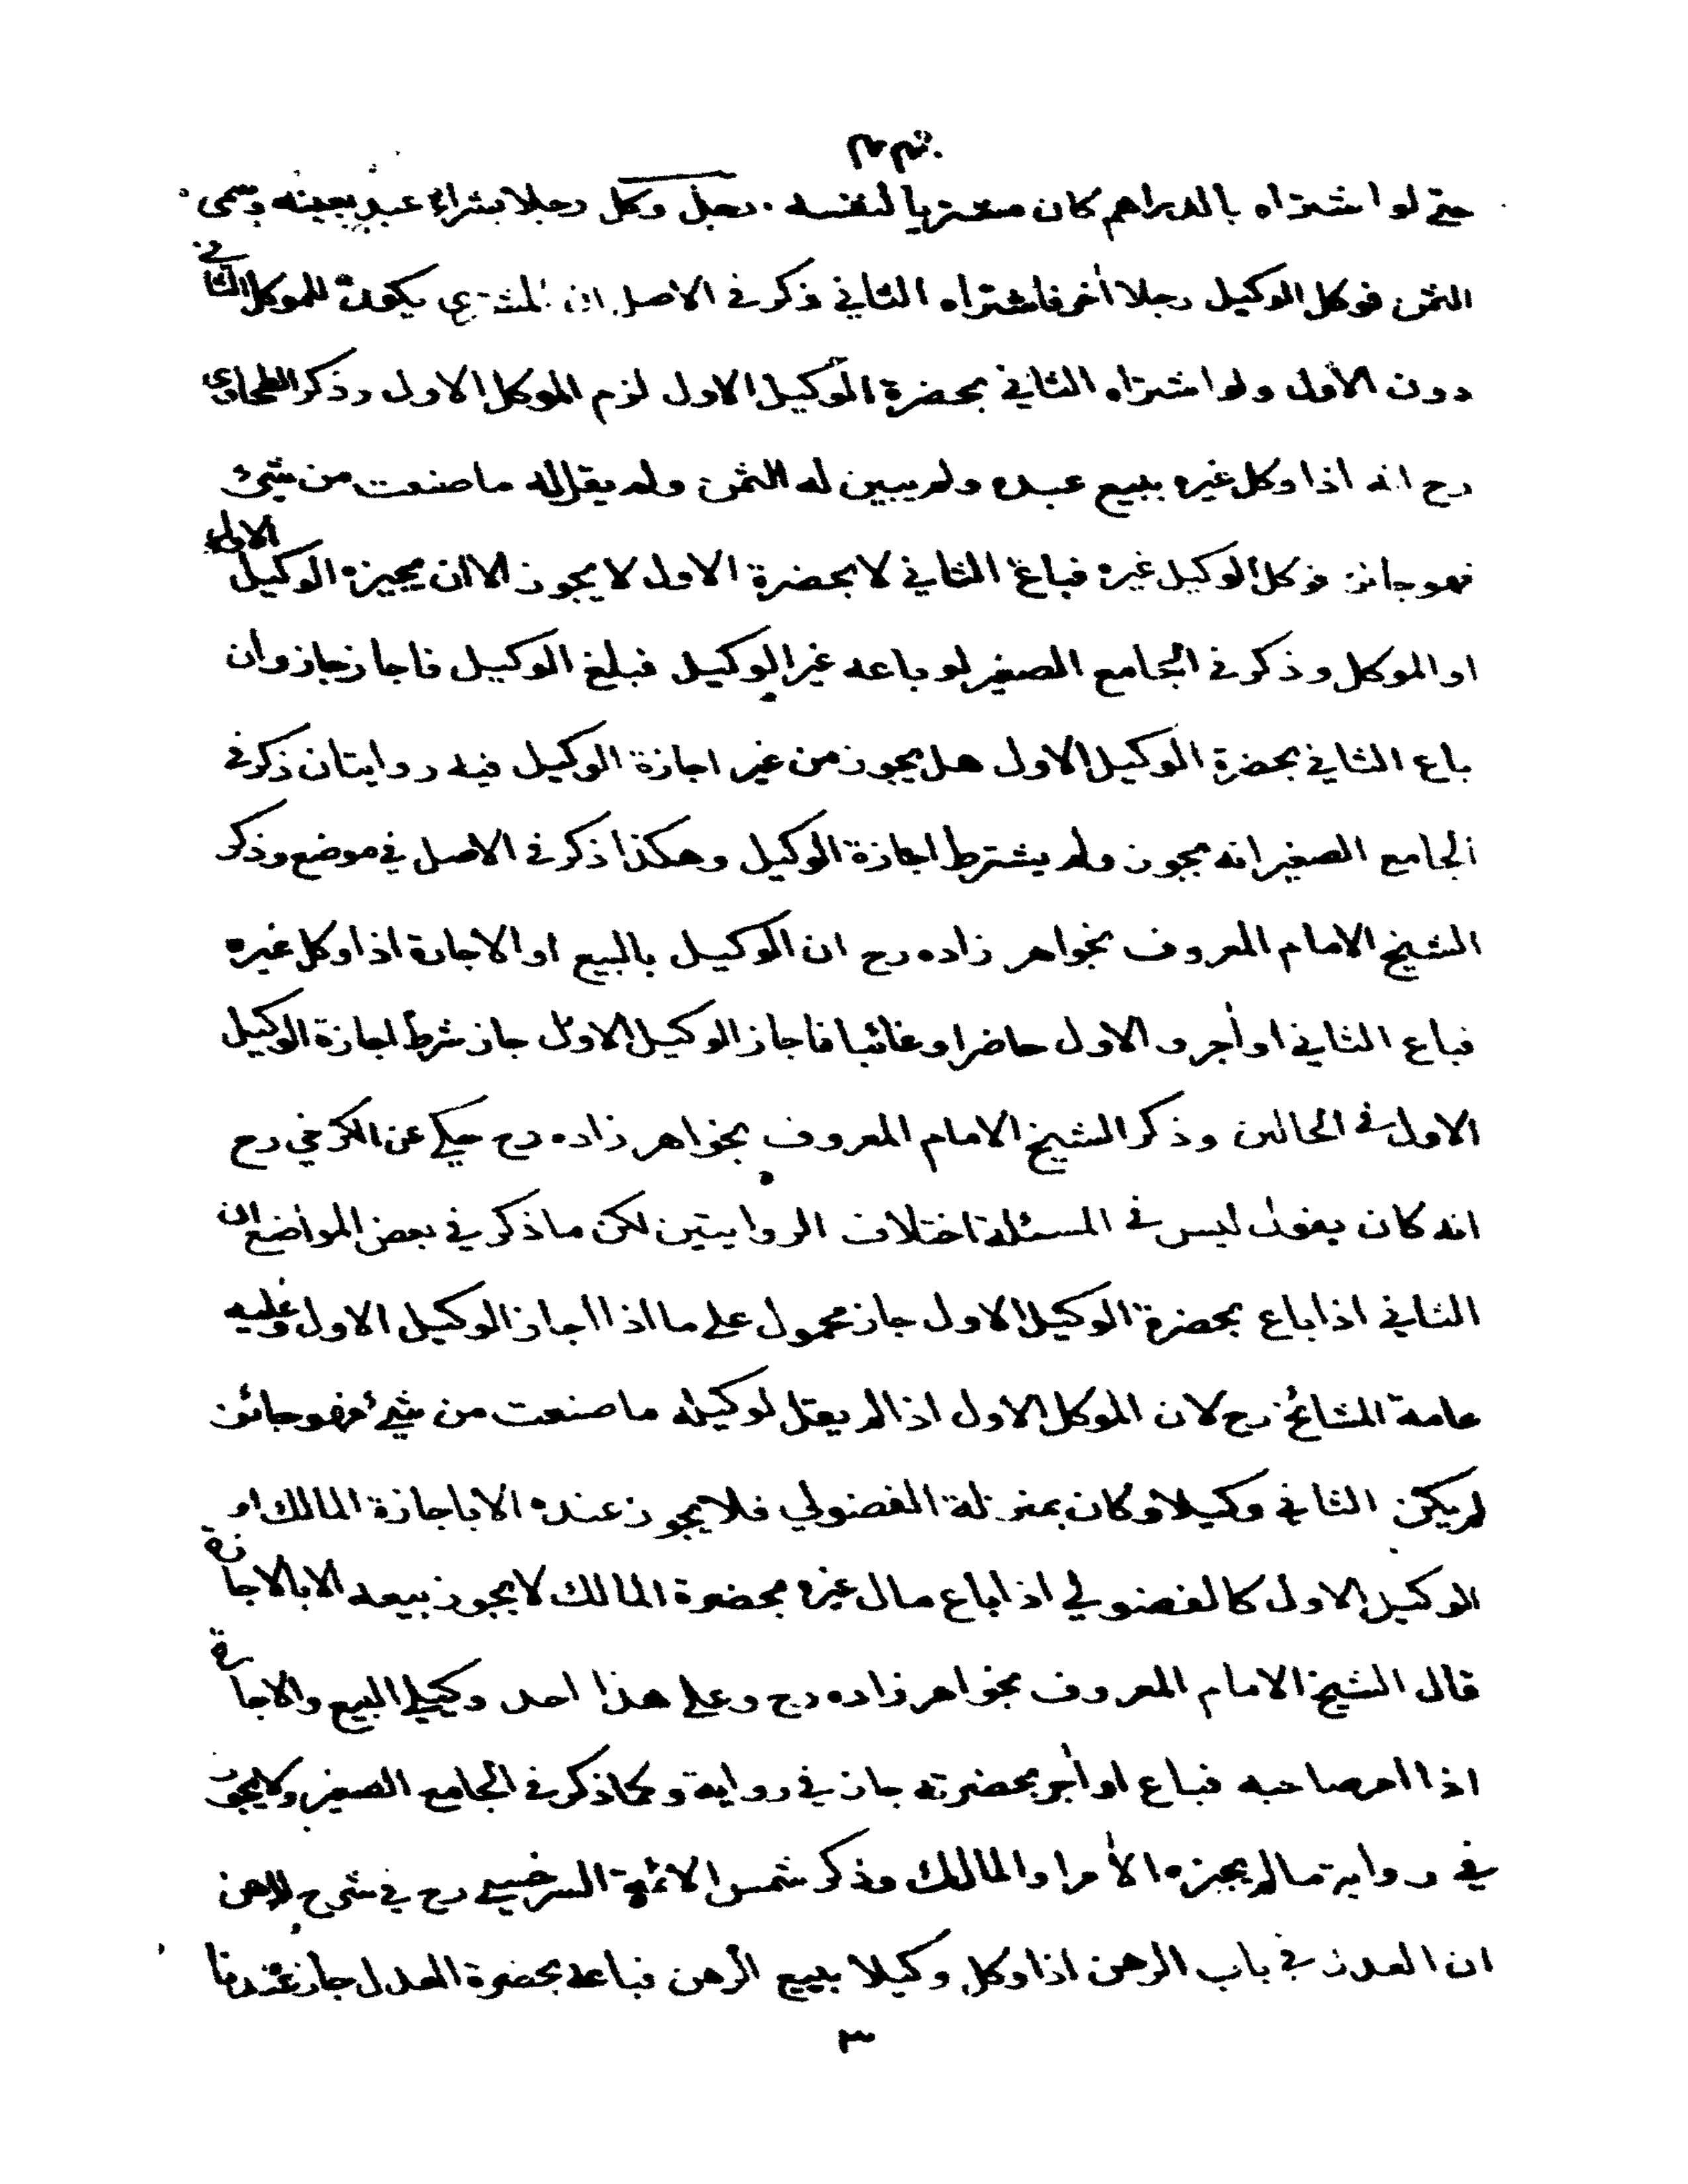 حتى لو اشتراه بالدراهم كان مشتريا لنفسه . رجل وكل رجلا بشراء عبد بعينه وسمى
الثمن فوكل الوكيل رجلا اخر فاشتراه الثاني ذكر في الاصل ان المشترى يكون للموكل الثاني
دون الأول ولو اشتراه الثاني بحضرة الوكيل الاول لزم الموكل الاول وذكر الطحاوي
رح انه اذا وكل غيره ببيع عبده ولم يبين له الثمن ولم يقل له ما صنعت من شيئ
فهو جائز فوكل الوكيل غيره فباع الثاني لا بحضرة الاول لا يجوز الا ان يجيزه الوكيل الاول
او الموكل وذكر في الجامع الصغير لو باعه غير الوكيل فبلغ الوكيل فاجاز جاز وان
باع الثاني بحضرة الوكيل الاول هل يجوز من غير اجازة الوكيل فيه روايتان ذكر في
الجامع الصغير انه يجوز ولم يشترط اجازة الوكيل وهكذا ذكر في الاصل في موضع وذكر
الشيخ الامام المعروف بخواهر زاده رح ان الوكيل بالبيع او الاجارة اذا وكل غيره
فباع الثاني او أجر و الاول حاضر او غائبا فاجاز الوكيل الاول جاز شرط اجازة الوكيل
الاول في الحالين وذكر الشيخ الامام المعروف بخواهر زاده رح حكي عن الكرخي رح
انه كان يقول ليس في المسئلة اختلاف الروايتين لكن ما ذكر في بعض المواضع ان
الثاني اذا باع بحضرة الوكيل الاول جاز محمول على ما اذا اجاز الوكيل الاول وعليه
عامة المشائخ رح لان الموكل الاول اذا لم يقل لوكيله ما صنعت من شيئ فهو جائز
لم يكن الثاني وكيلا وكان بمنزلة الفضولي فلا يجوز عنده الا باجازة المالك او
الوكيل الاول كالفضولي اذا باع مال غيره بحضرة المالك لا يجوز بيعه الا بالاجازة
قال الشيخ الامام المعروف بخواهر زاده رح وعلى هذا احد وكيلي البيع والاجارة
اذا امر صاحبه فباع او أجر بحضرته جاز في رواية وكما ذكر في الجامع الصغير ولا يجوز
في رواية ما لم يجزه الأمر او المالك وذكر شمس الائمة السرخسي رح في شرح الرهن
ان العدل في باب الرهن اذا وكل وكيلا ببيع الرهن فباعه بحضرة العدل جاز عندنا
٣